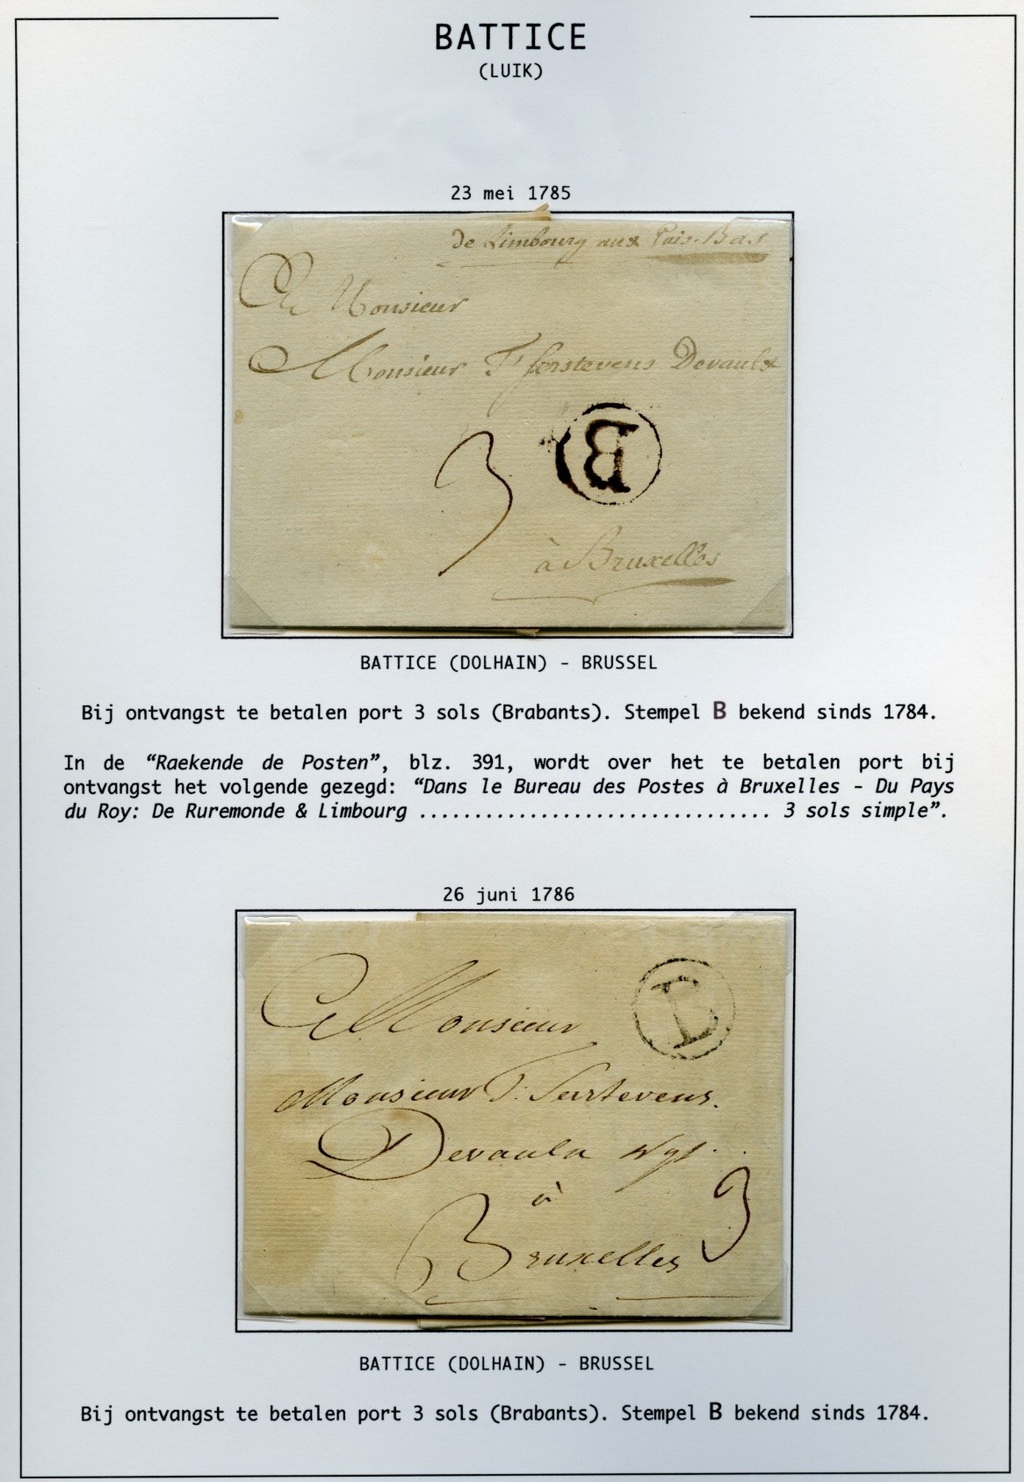 BATTICE
(LUIK)
23 mei 1785
De Limbourg aux Pais-Bas
A Monsieur
Monsieur F Serstevens Devaulx
B
3
à Bruxelles
BATTICE (DOLHAIN) - BRUSSEL
Bij ontvangst te betalen port 3 sols (Brabants). Stempel B bekend sinds 1784.
In de “Raekende de Posten”, blz. 391, wordt over het te betalen port bij
ontvangst het volgende gezegd: “Dans le Bureau des Postes à Bruxelles - Du Pays
du Roy: De Ruremonde & Limbourg ................................ 3 sols simple”.
26 juni 1786
A Monsieur
Monsieur Serstevens.
à
3
Bruxelles
BATTICE (DOLHAIN) - BRUSSEL
Bij ontvangst te betalen port 3 sols (Brabants). Stempel B bekend sinds 1784.